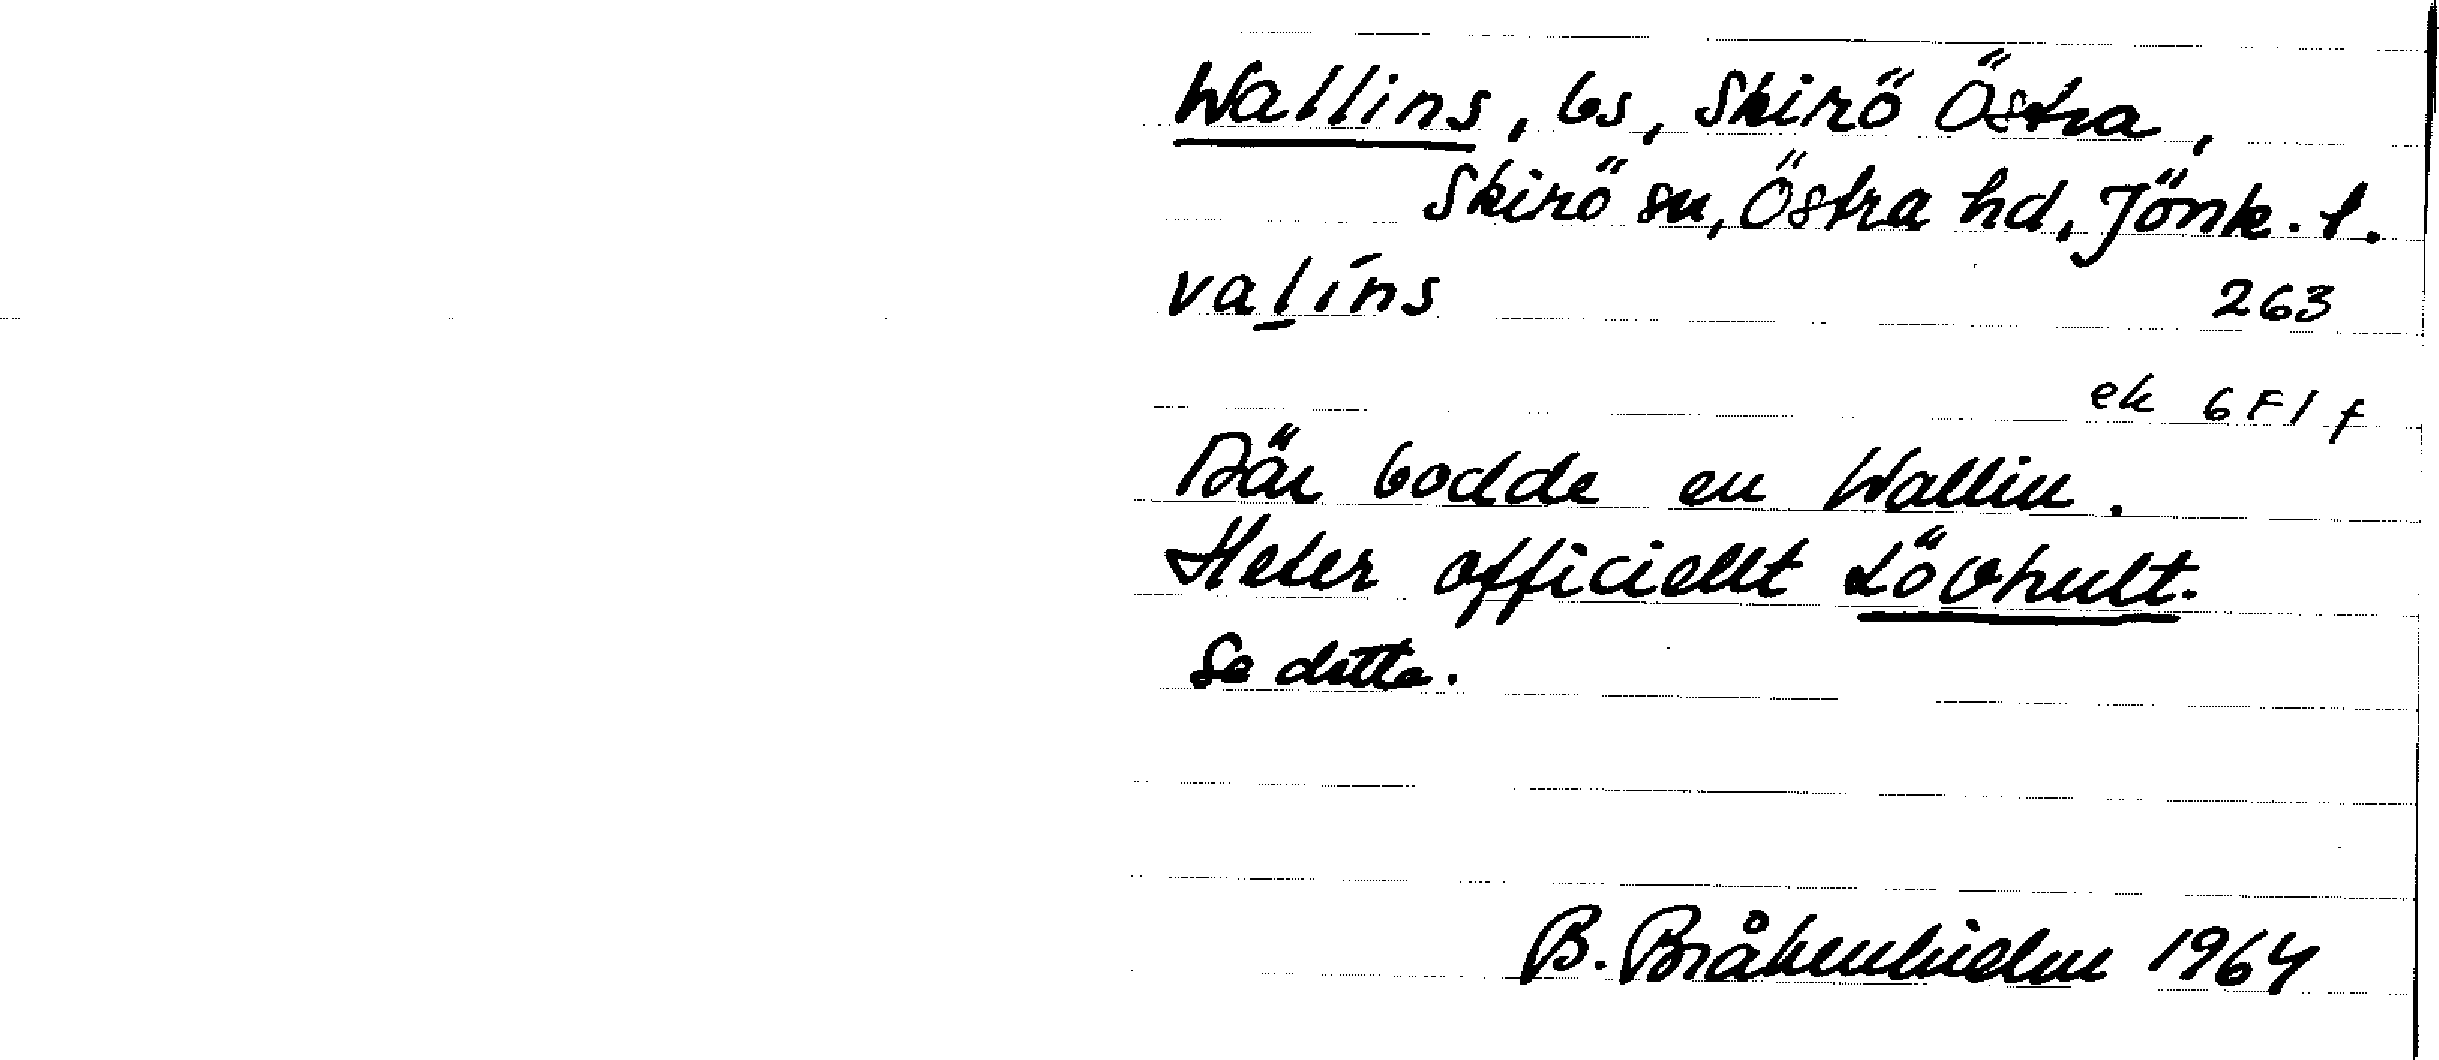 Wallins, bs, Skirö Östra,
Skirö sn, Östra hd, Jönk. l.
val̲íns
263
ek 6F1f
Där bodde en Wallin.
Heter officiellt Lövhult.
Se detta.
B. Bråkenhielm 1964